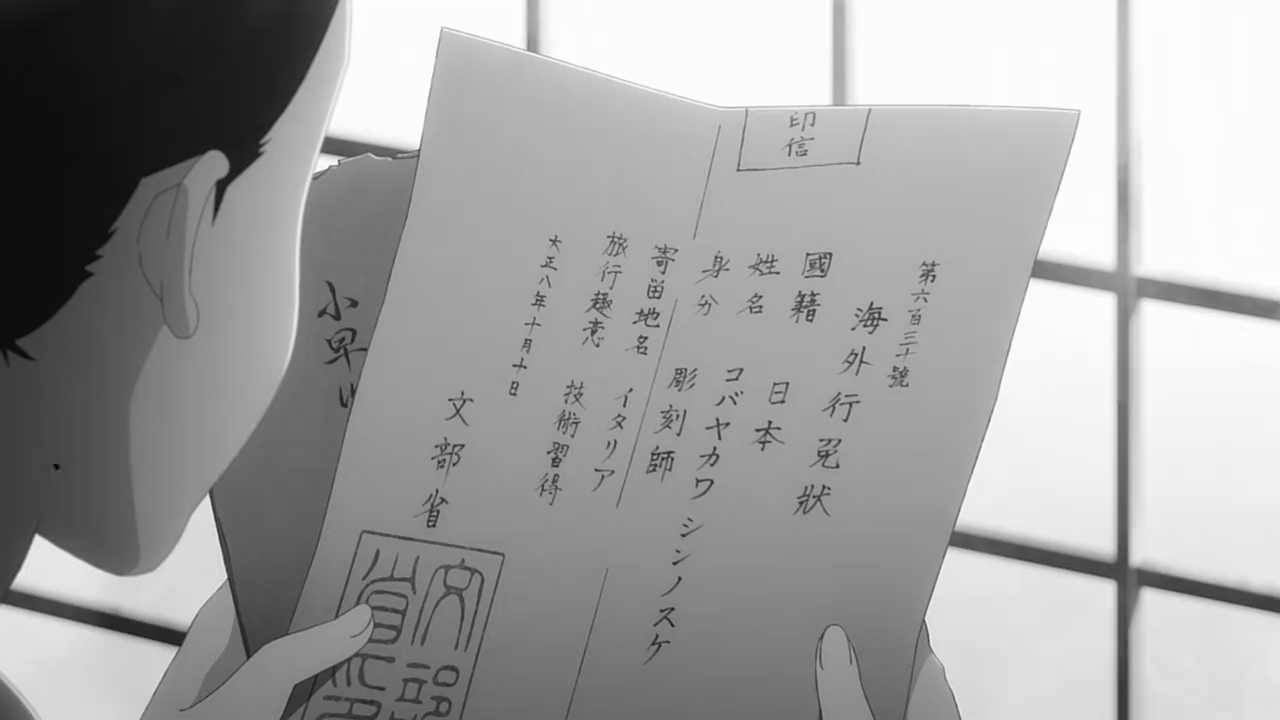 印信
第六百三十號
海外行免狀
國籍 日本
姓名 コバヤカワ シンノスケ
身分 彫刻師
寄留地名 イタリア
旅行趣意 技術習得
大正八年十月十日
文部省
文部省印
小早川